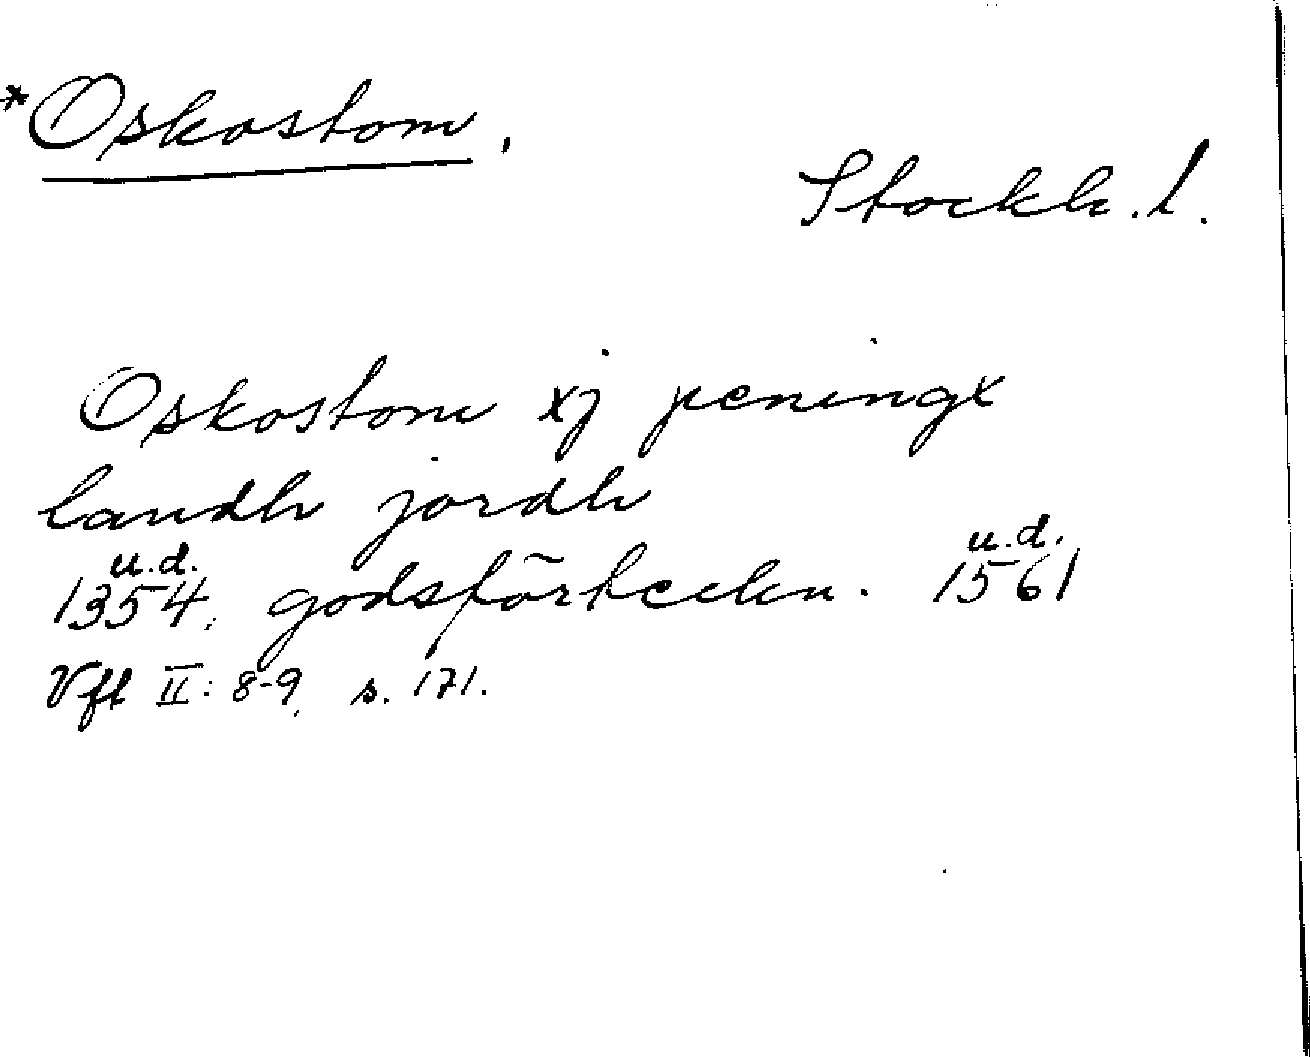 *Oskostom.
Stockh. l.
Oskostom xj peningx
landh jordh
u.d. u.d.
1354. godsförteckn. 1561
Vft II: 8-9, s. 171.